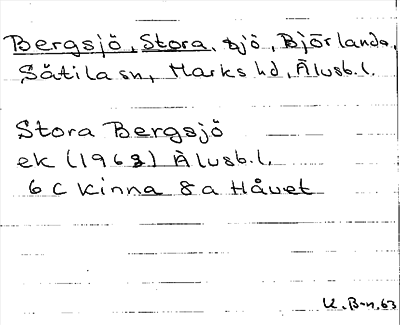 Bergsjö, Stora, sjö, Björlanda,
Sätila sn, Marks hd, Älvsb.l.
Stora Bergsjö
ek (1963) Älvsb.l.
6 C Kinna 8 a Håvet
K.B-n,63